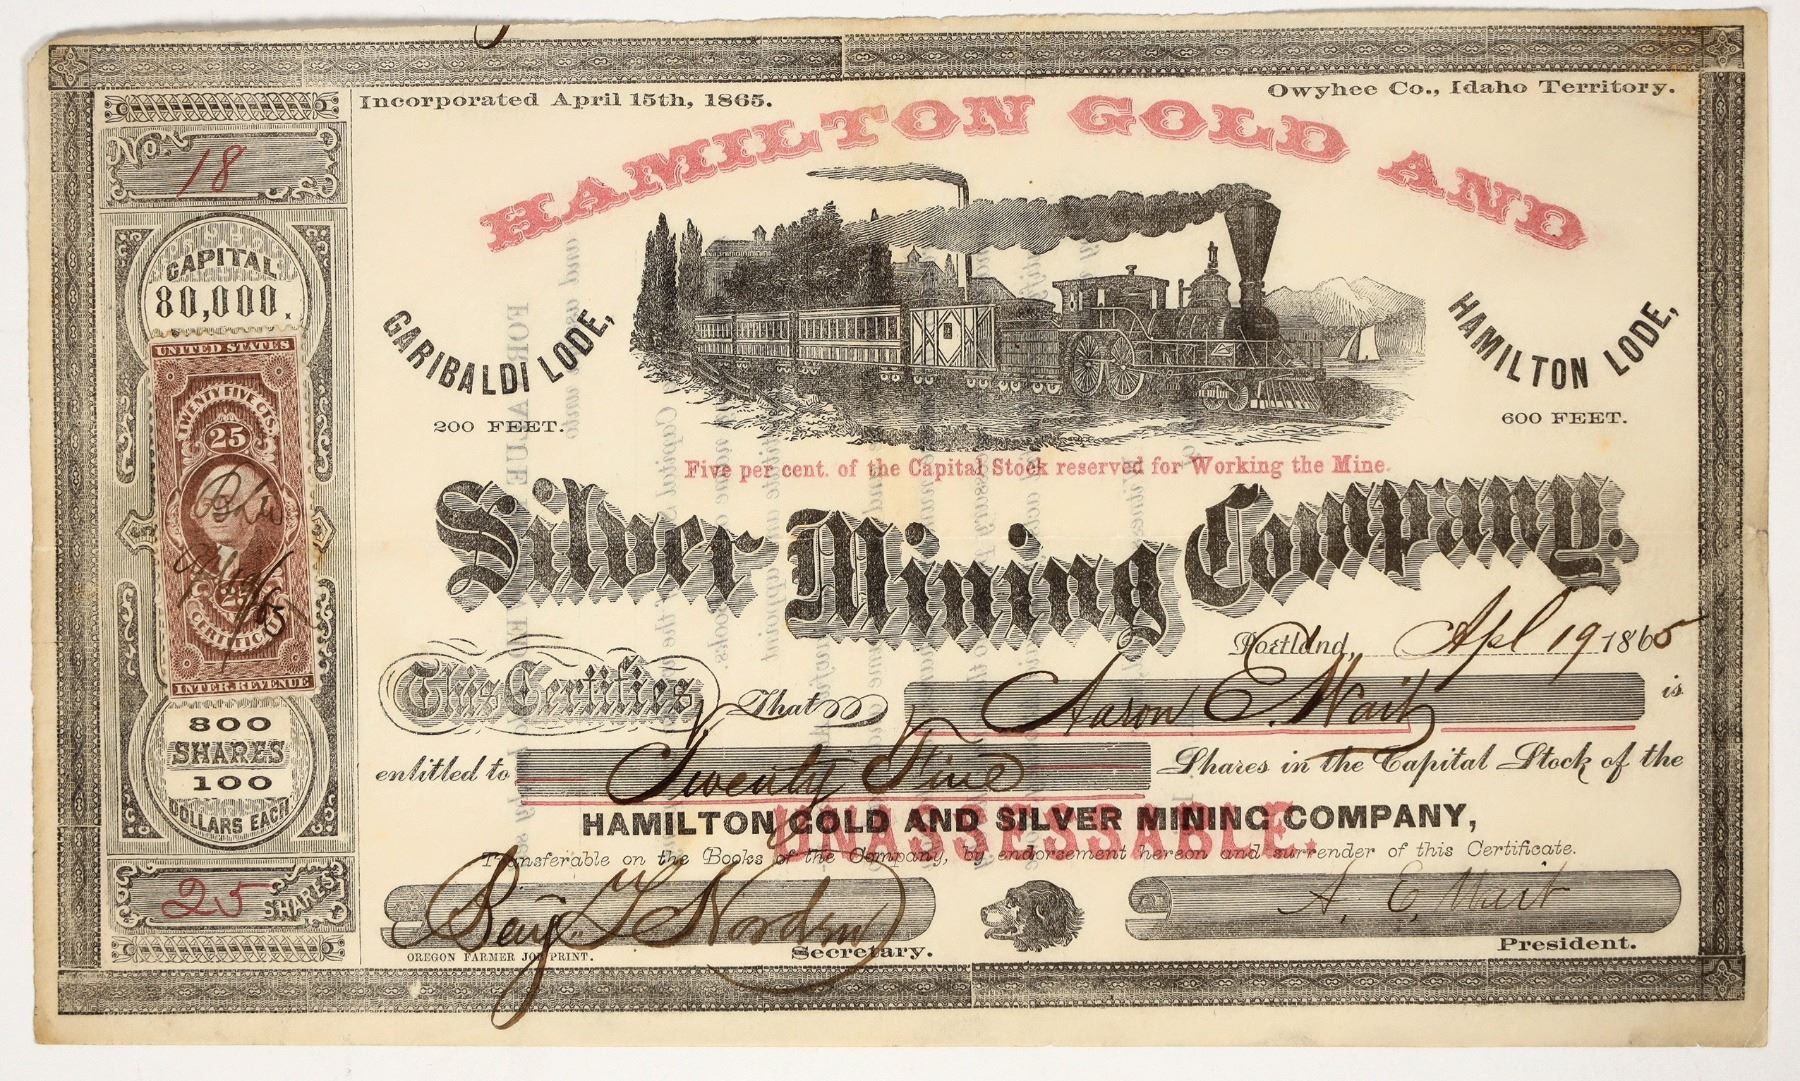 Incorporated April 15th, 1865.
Owyhee Co., Idaho Territory.
HAMILTON GOLD AND
GARIBALDI LODE,
200 FEET.
HAMILTON LODE,
600 FEET.
Five per cent. of the Capital Stock reserved for Working the Mine.
Silver Mining Company.
Portland, Apl 19 1865
This Certifies That Aaron E. Wait is
entitled to Twenty Five Shares in the Capital Stock of the
HAMILTON GOLD AND SILVER MINING COMPANY,
UNASSESSABLE.
Transferable on the Books of the Company, by endorsement hereon and surrender of this Certificate.
Benj. Secretary.
A. E. Wait
President.
OREGON FARMER JOB PRINT.
No. 18
CAPITAL
80,000.
UNITED STATES
TWENTY FIVE CTS.
25
25
CERTIFICATE
INTER. REVENUE
800
SHARES
100
DOLLARS EACH
25 SHARES